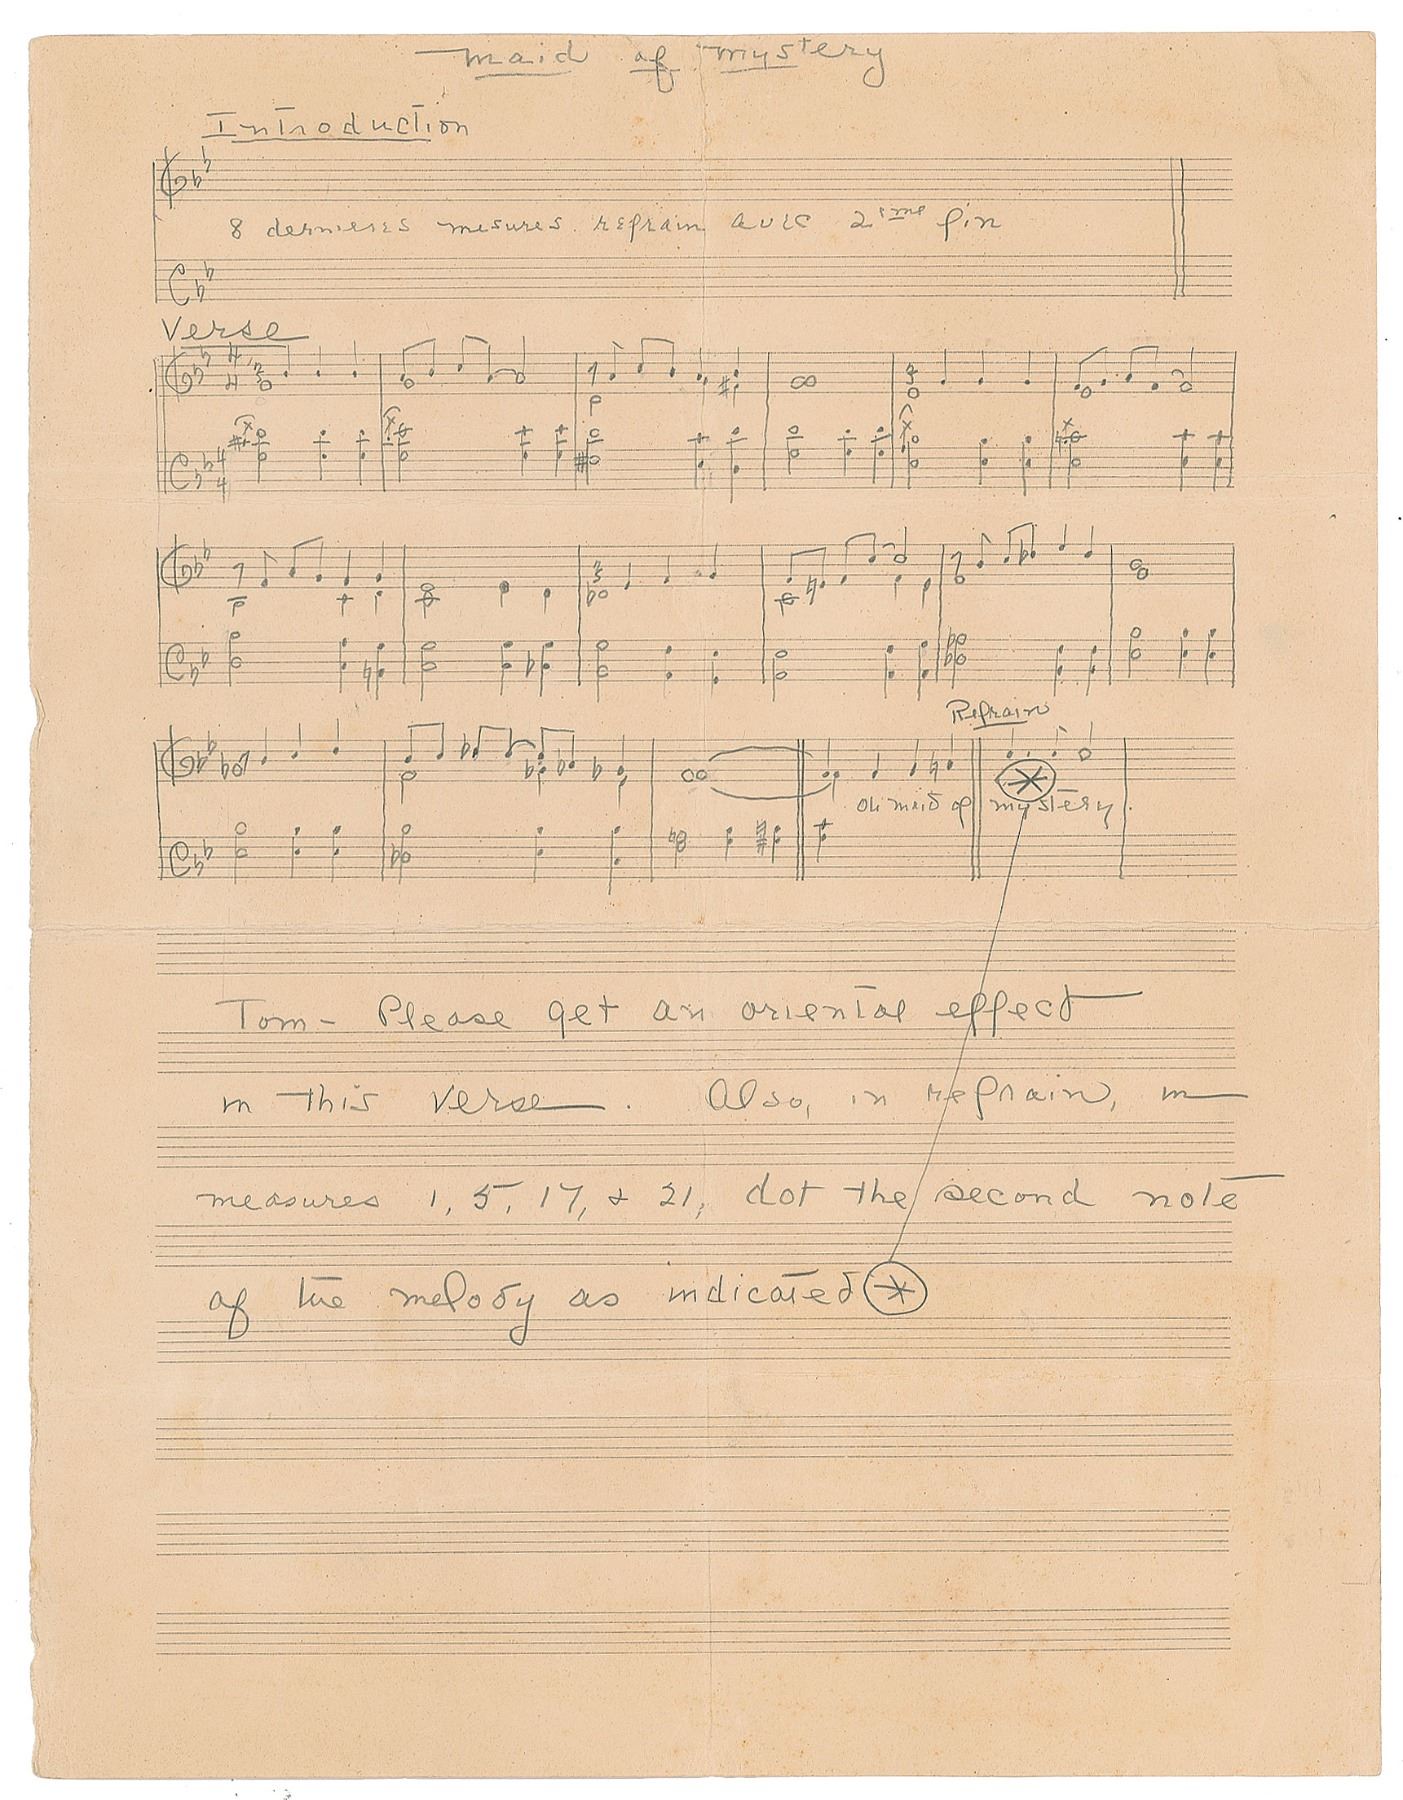 Maid of Mystery
Introduction
8 dernieres mesures refrain avec 2eme fin
Verse
4
4
4
4
Refrain
Oh maid of mystery.
Tom - Please get an oriental effect
in this verse. Also, in refrain, in
measures 1, 5, 17, & 21, dot the second note
of the melody as indicated *